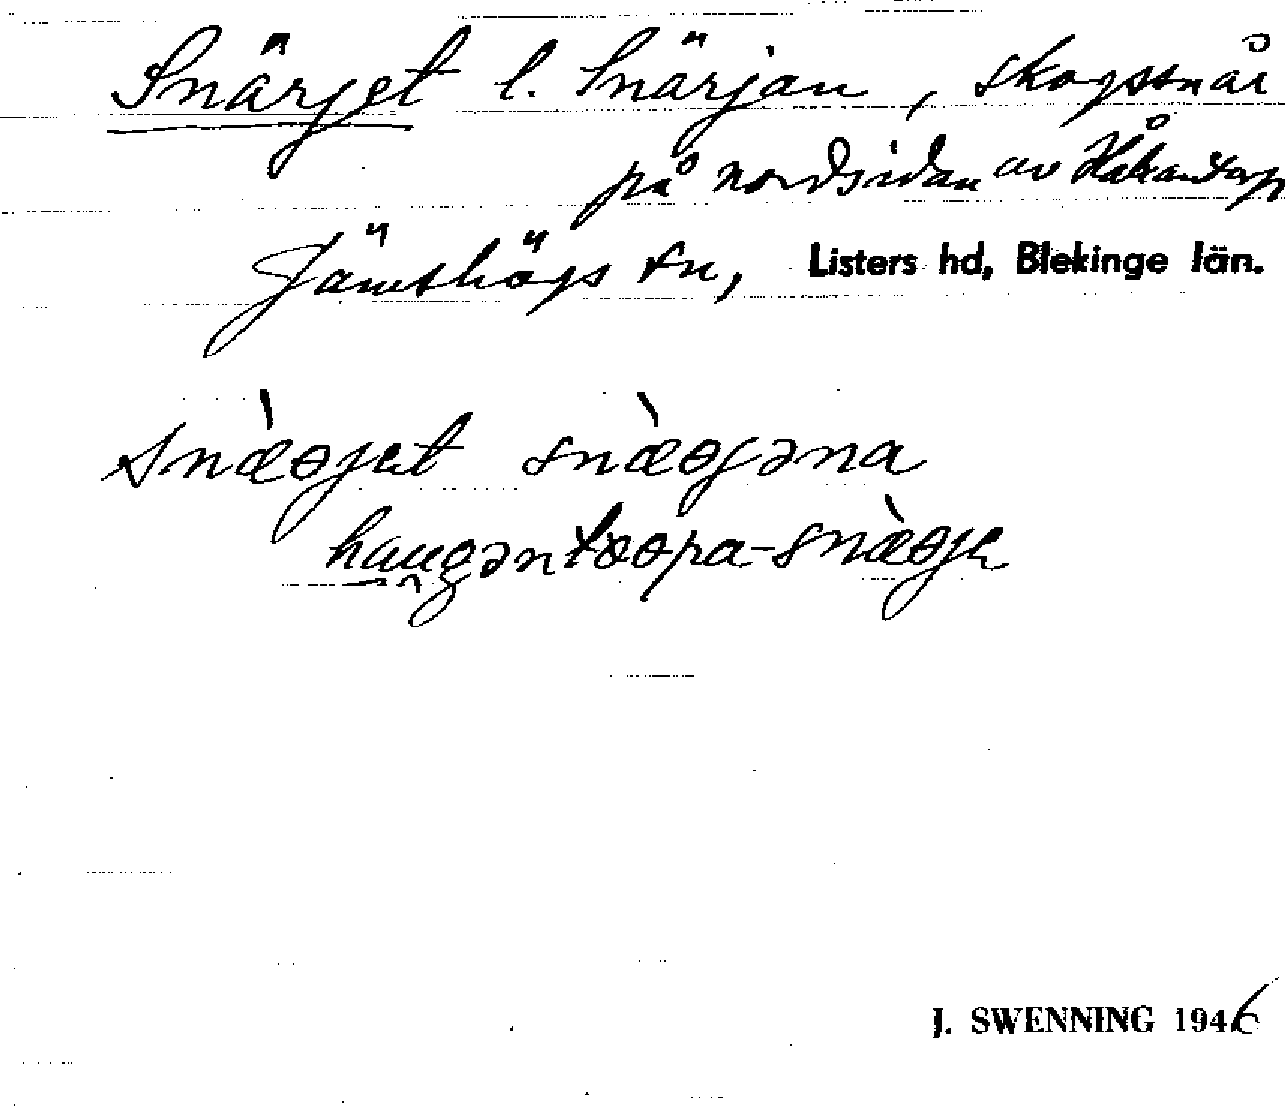 Snärjet l. Snärjan, skogssnår
på nordsidan av Håkantorp
Jämshögs sn, Listers hd, Blekinge län.
snæɵjet snæɵjəna
haugəntɵɵpa-snæɵje
J. SWENNING 1946